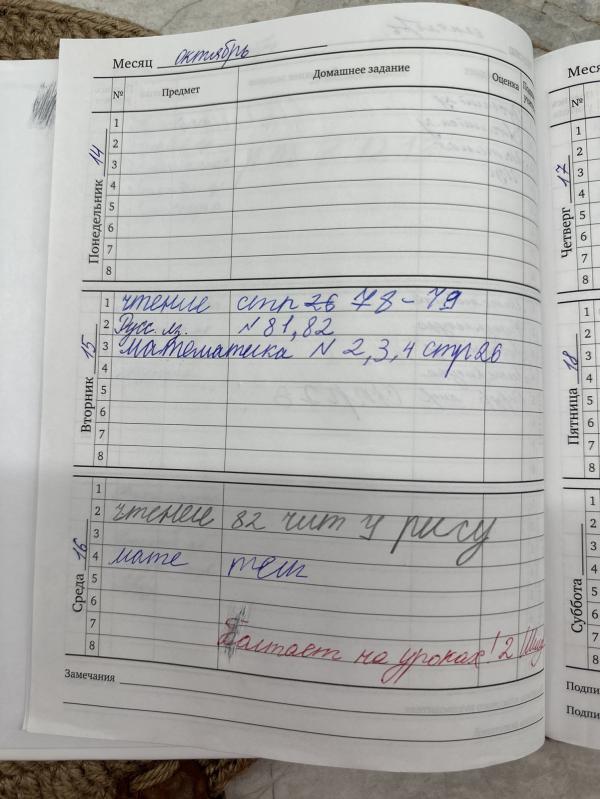 Месяц октябрь
№ Предмет Домашнее задание Оценка
Понедельник 14
1
2
3
4
5
6
7
8
Вторник 15
1 чтение стр 26 78-79
2 Русс. яз. N 81, 82
3 математика N 2, 3, 4 стр 26
4
5
6
7
8
Среда 16
1
2 чтение 82 чит у рису
3
4 мате теш
5
6
7
8 Болтает на уроках! 2
Замечания
Меся
№
Четверг 17
1
2
3
4
5
6
7
8
Пятница 18
1
2
3
4
5
6
7
8
Суббота
1
2
3
4
5
6
7
8
Подпи
Подпи